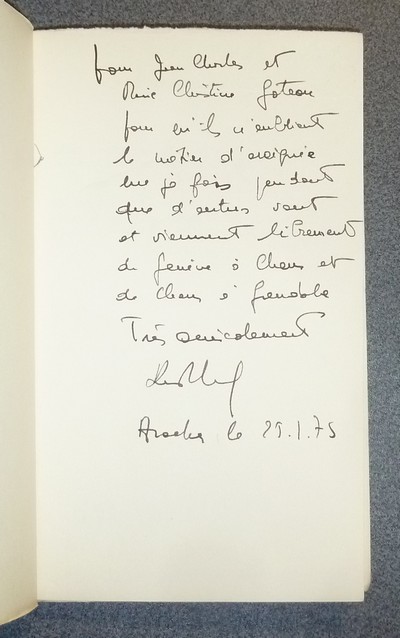 pour Jean Charles et
Marie Christine Gateau
pour qu'ils n'oublient
le métier d'araignée
que je fais pendant
que d'autres vont
et viennent librement
de Genève à Chens et
de Chens à Grenoble
Très amicalement
le 25.1.75